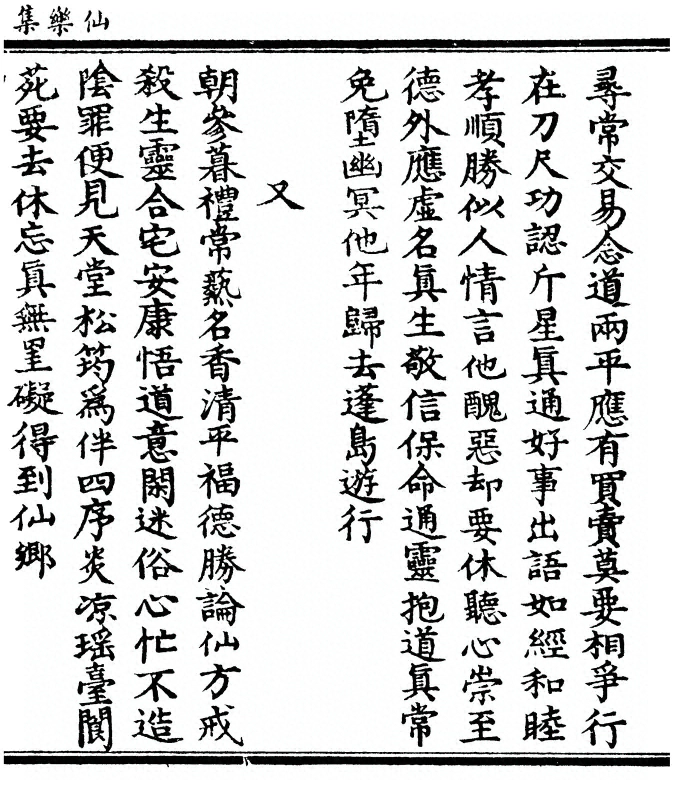 仙樂集
尋常交易念道兩平應有買賣莫要相爭行
在刀尺功認斤星眞通好事出語如經和睦
孝順勝似人情言他醜惡却要休聽心崇至
德外應虛名眞生敬信保命通靈抱道眞常
免墮幽冥他年歸去蓬島遊行
又
朝參暮禮常爇名香清平福德勝論仙方戒
殺生靈合宅安康悟道意閑迷俗心忙不造
陰罪便見天堂松筠爲伴四序炎凉瑤臺閬
苑要去休忘眞無罣礙得到仙鄉